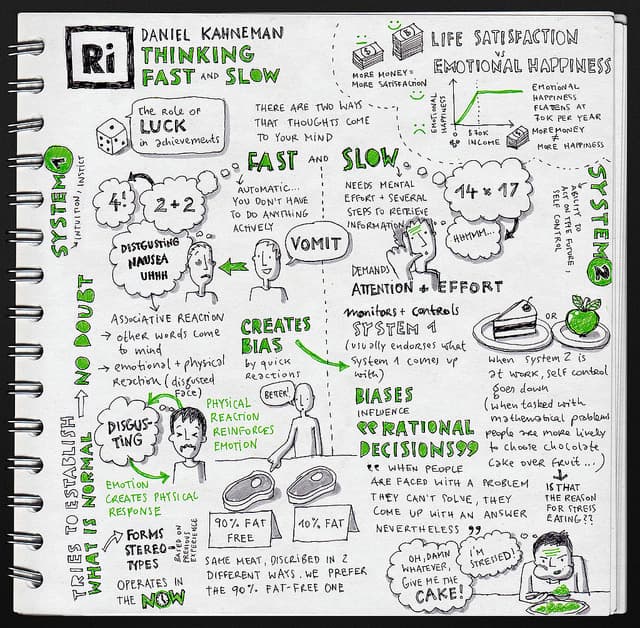 Ri
DANIEL KAHNEMAN
THINKING
FAST AND SLOW
LIFE SATISFACTION
VS
EMOTIONAL HAPPINESS
MORE MONEY =
MORE SATISFACTION
EMOTIONAL
HAPPINESS
$70K
INCOME
EMOTIONAL
HAPPINESS
FLATENS AT
70K PER YEAR
MORE MONEY
≠
MORE HAPPINESS
The Role of
LUCK
in achievements
THERE ARE TWO WAYS
THAT THOUGHTS COME
TO YOUR MIND
FAST AND SLOW
SYSTEM 1
INTUITION / INSTICT
4!
2+2
AUTOMATIC...
YOU DON'T HAVE
TO DO ANYTHING
ACTIVELY
DISTGUSTING
NAUSEA
UHHH
VOMIT
ASSOCIATIVE REACTION
→ other words come
to mind
→ emotional + physical
Reaction (disgusted
face)
CREATES
BIAS
by quick
reactions
DISGUS-
TING
PHYSICAL
REACTION
REINFORCES
EMOTION
EMOTION
CREATES PHYSICAL
RESPONSE
TRIES TO ESTABLISH
WHAT IS NORMAL → NO DOUBT
FORMS
STEREO-
TYPES
BASED ON
PREVIOUS
EXPERIENCE
OPERATES IN
THE NOW
BETTER!
90% FAT
FREE
10% FAT
SAME MEAT, DISCRIBED IN 2
DIFFERENT WAYS. WE PREFER
THE 90% FAT-FREE ONE
SYSTEM 2
ABILITY TO
ACT ON THE FUTURE,
SELF CONTROL
NEEDS MENTAL
EFFORT + SEVERAL
STEPS TO RETRIEVE
INFORMATION
14 x 17
HMMM...
DEMANDS
ATTENTION + EFFORT
monitors + controls
SYSTEM 1
(usually endorses what
System 1 comes up
with)
OR
when system 2 is
at work, self control
goes down
(when tasked with
mathematical problems
people are more likely
to choose chocolate
cake over fruit...)
BIASES
INFLUENCE
"RATIONAL
DECISIONS"
" WHEN PEOPLE
ARE FACED WITH A PROBLEM
THEY CAN'T SOLVE, THEY
COME UP WITH AN ANSWER
NEVERTHELESS "
IS THAT
THE REASON
FOR STRESS
EATING??
OH, DAMN
WHATEVER,
GIVE ME THE
CAKE!
I'M
STRESSED!